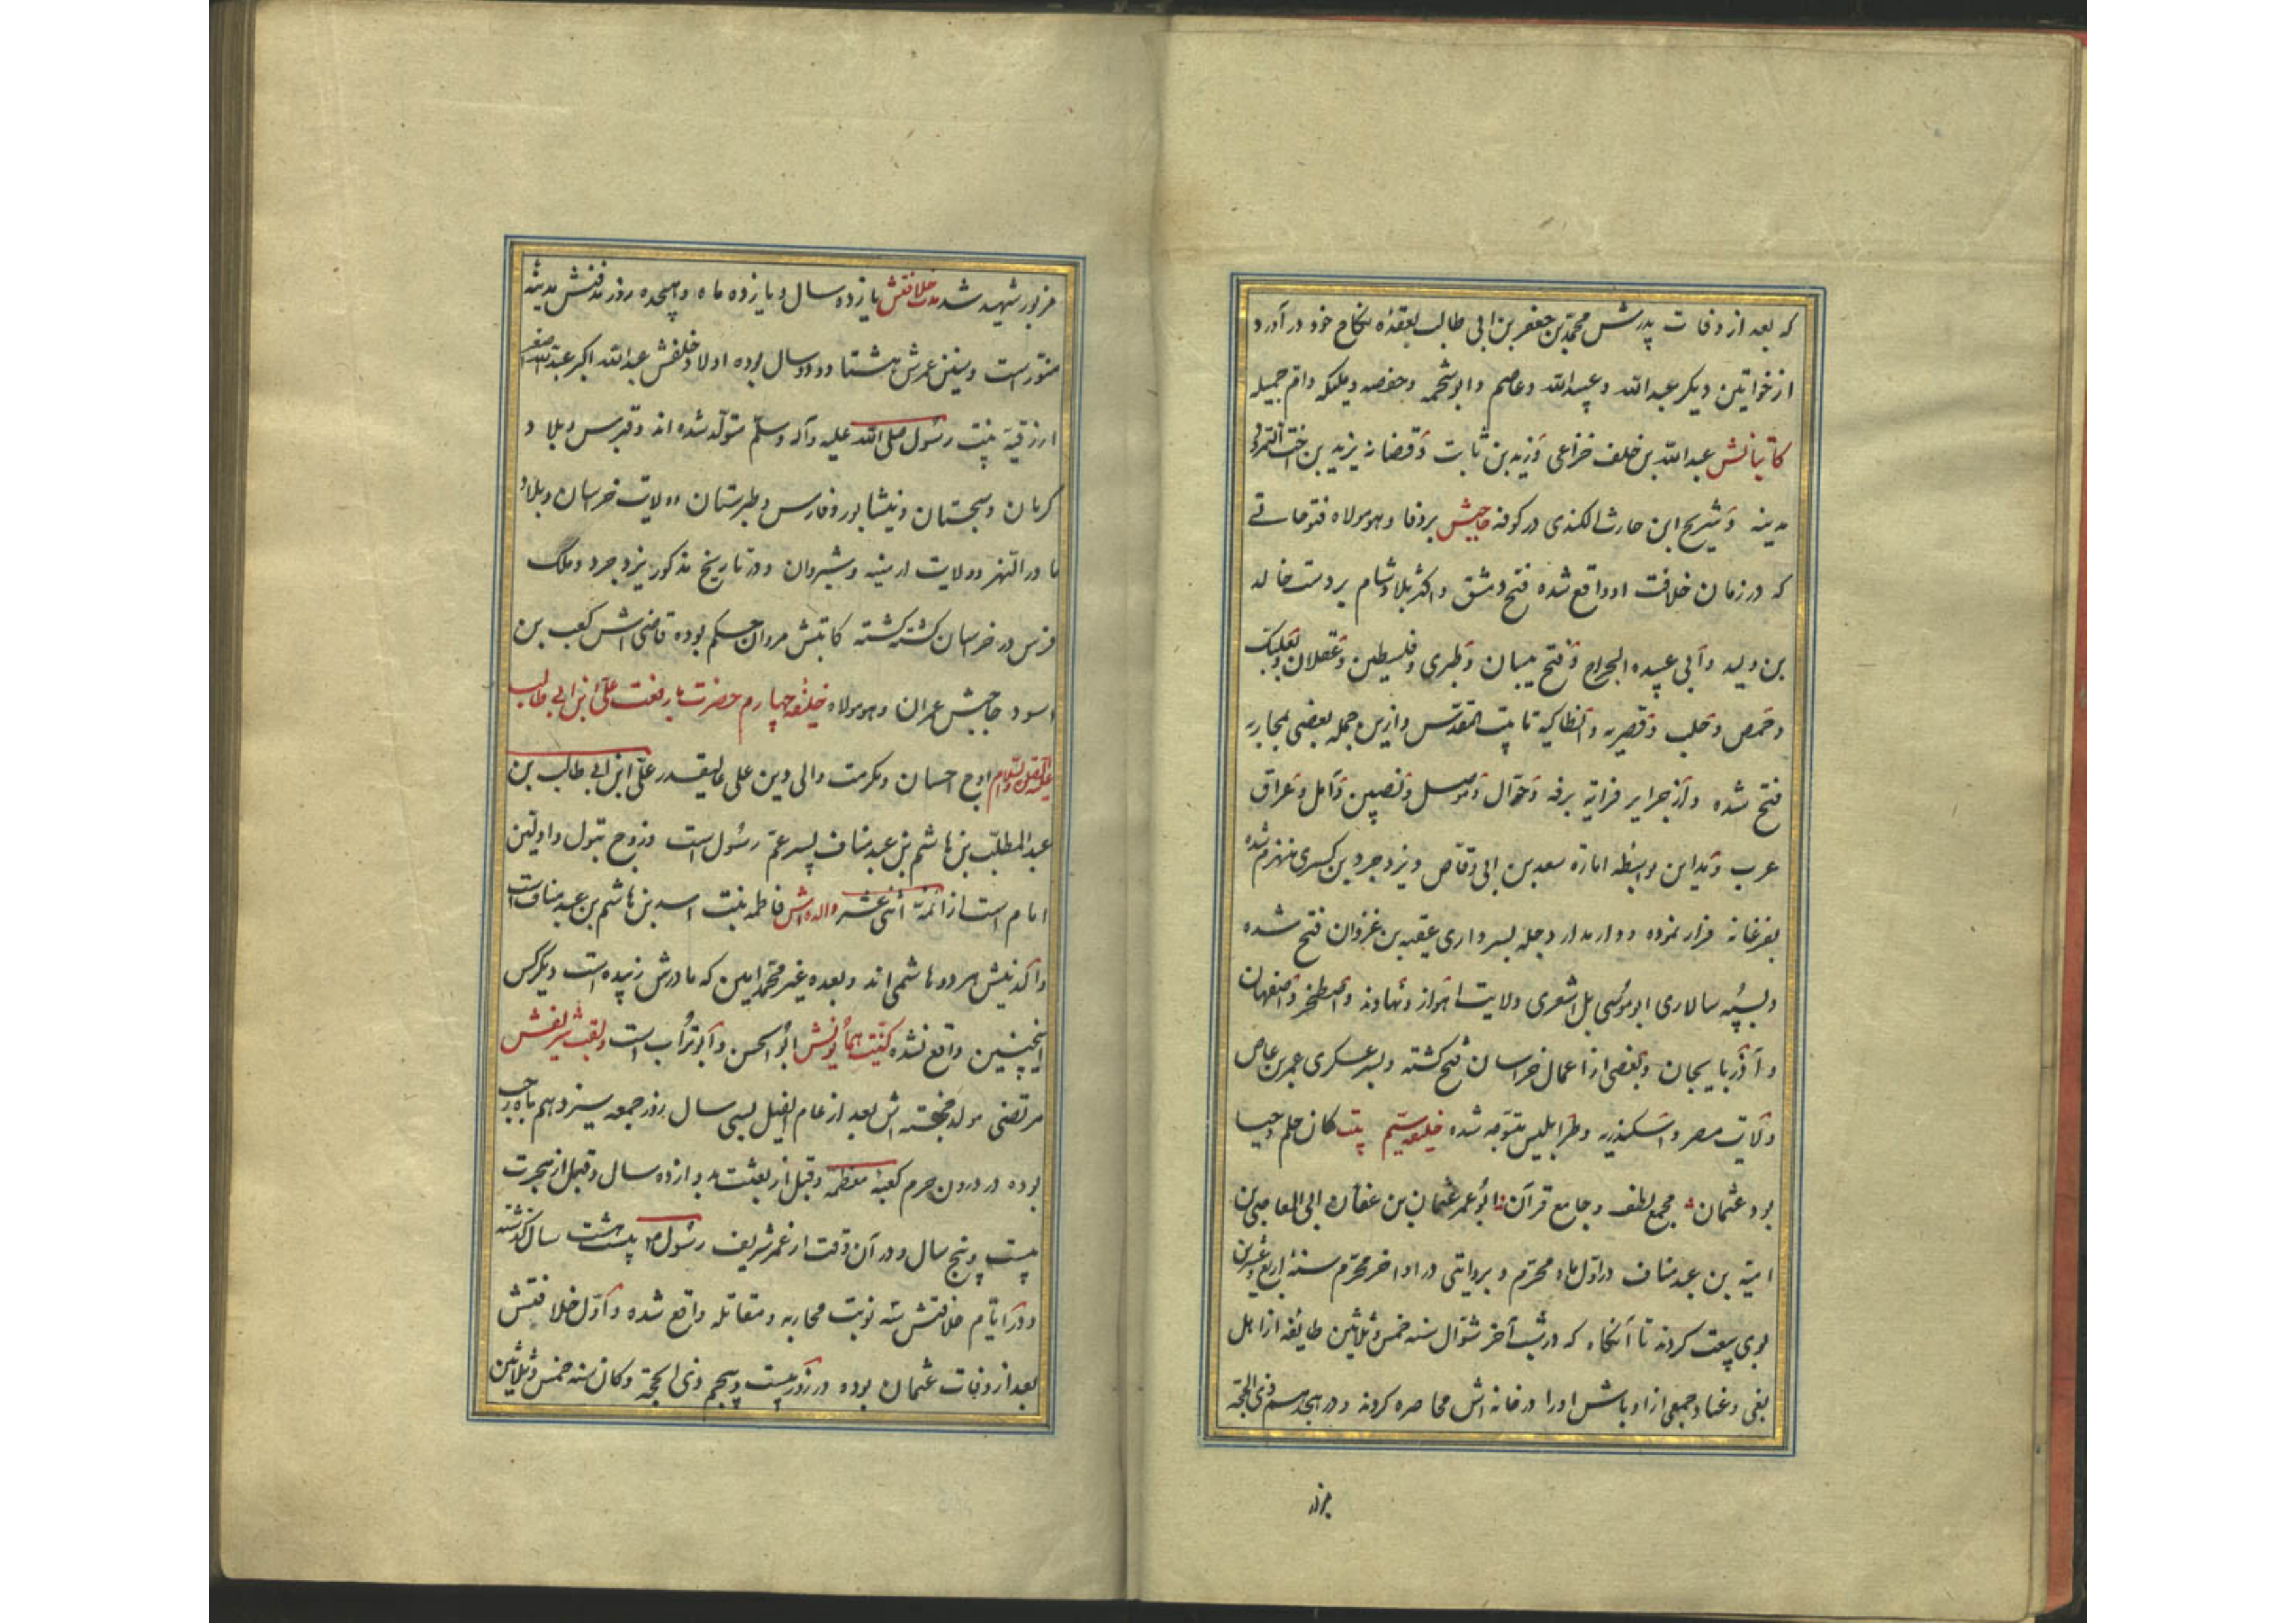 که بعد از وفات پدرش محمد بن جعفر بن ابی طالب بعقده نکاح خود درآورد
از خواتین دیکر عبدالله و عبیدالله و عاصم و ابوشحمه و حفصه و ملیکه و ام جمیله
کاتبانش عبدالله بن خلف خزاعی و زید بن ثابت و قضانه یزید بن اخت النمر در
مدینه و شریح ابن حارث الکندی در کوفه حاجبش برفا و هو مولاه فتوحاتی
که در زمان خلافت او واقع شده فتح دمشق و اکثر بلاد شام بر دست خالد
بن ولید و ابی عبیده الجراح و فتح بیسان و طبری و فلسطین و عسقلان و بعلبک
و حمص و حلب و قیصریه و انطاکیه تا بیت المقدس و ازین جمله بعضی بمحاربه
فتح شده و از جزایر فراتیه برقه و حران و موصل و نصیبین و آمل و عراق
عرب و مداین بواسطه اماره سعد بن ابی وقاص و یزدجرد بن کسری منهزم شده
بفرغانه فرار نموده و وار مدار دجله بسرداری عقبه بن غزوان فتح شده
و بسپه سالاری ابوموسی بل اشعری ولایت اهواز و نهاوند و اصطخر و اصفهان
و آذربایجان و بعضی از اعمال خراسان فتح کشته و بسرعسکری عمر بن عاص
ولایت مصر و اسکندریه و طرابلیس متوجه شده خلیفه سیم بیت کان حلم و حیا
بود عثمان مجمع لطف و جامع قرآن ابوعمر عثمان بن عفان بن ابی العاص بن
امیه بن عبد مناف در اول ماه محرم و بروایتی در اواخر محرم سنه اربع و عشرین
بوی بیعت کردند تا آنکاه که در شب آخر شوال سنه خمس و ثلاثین طایفه از اهل
بغی و عناد و جمعی از اوباش او را در خانه اش محاصره کردند و در هیجدهم ذی الحجه
مزبور
مزبور شهید شد مدت خلافتش یازده سال و یازده ماه و هیجده روز مدفنش مدینه
منوراست و سنین عمرش هشتاد و دو سال بوده اولاد خلفش عبدالله اکبر عبدالله اصغر
از رقیه بنت رسول صلی الله علیه وآله وسلم متولد شده اند و قبرس و بلاد
کرمان و سجستان و نیشابور و فارس و طبرستان و ولایت خراسان و بلاد
ما وراء النهر و ولایت ارمینه و شیروان و در تاریخ مذکور یزدجرد و ملک
فرس در خراسان کشته کشته کاتبش مروان حکم بوده قاضی اش کعب بن
اسود حاجبش عمران و هو مولاه خلیفه چهارم حضرت با رفعت علی ابن ابی طالب
علیه الصلوة والسلام اوج احسان و مکرمت والی دین علی عالیقدر علی ابن ابی طالب بن
عبدالمطلب بن هاشم بن عبد مناف پسر عم رسول است و زوج بتول و اولین
امام است از ائمه اثنی عشر والده اش فاطمه بنت اسد بن هاشم بن عبد مناف است
هر دو هاشمی اند و بعده غیر محمد امین که مادرش زبیده است دیکر کس
اینچنین واقع نشده کنیت همایونش ابوالحسن و ابوتراب است و لقب شریفش
مرتضی مولد خجسته اش بعد از عام الفیل بسی سال روز جمعه سیزدهم ماه رجب
بوده در درون حرم کعبه معظمه و قبل از بعثت بدوازده سال و قبل از هجرت
بیست و پنج سال و در آن وقت از عمر شریف رسول بیست هشت سال کذشته
و در ایام خلافتش سه نوبت محاربه و مقاتله واقع شده و اول خلافتش
بعد از وفات عثمان بوده در روز بیست و پنجم ذی الحجه و کان سنه خمس و ثلاثین